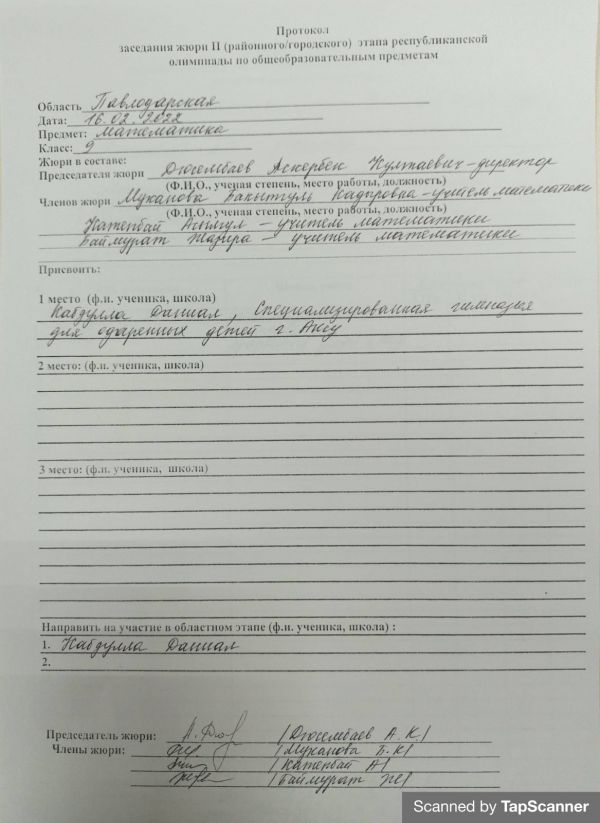 Протокол
заседания жюри II (районного/городского) этапа республиканской
олимпиады по общеобразовательным предметам
Область Павлодарская
Дата: 16.02.2022
Предмет: Математика
Класс: 9
Жюри в составе:
Председателя жюри Дюсембаев Аскербек Культаевич - директор
(Ф.И.О., ученая степень, место работы, должность)
Членов жюри Муканова Бакытгуль Кадыровна - учитель математики
(Ф.И.О., ученая степень, место работы, должность)
Катенбай - учитель математики
Баймурат - учитель математики
Присвоить:
1 место (ф.и. ученика, школа)
Кабдулла Даниал, Специализированная гимназия
для одаренных детей г. Аксу
2 место: (ф.и. ученика, школа)
3 место: (ф.и. ученика, школа)
Направить на участие в областном этапе (ф.и. ученика, школа) :
1. Кабдулла Даниал
2.
Председатель жюри: /Дюсембаев А. К./
Члены жюри: /Муканова Б.К/
/Катенбай А/
/Баймурат Ж/
Scanned by TapScanner